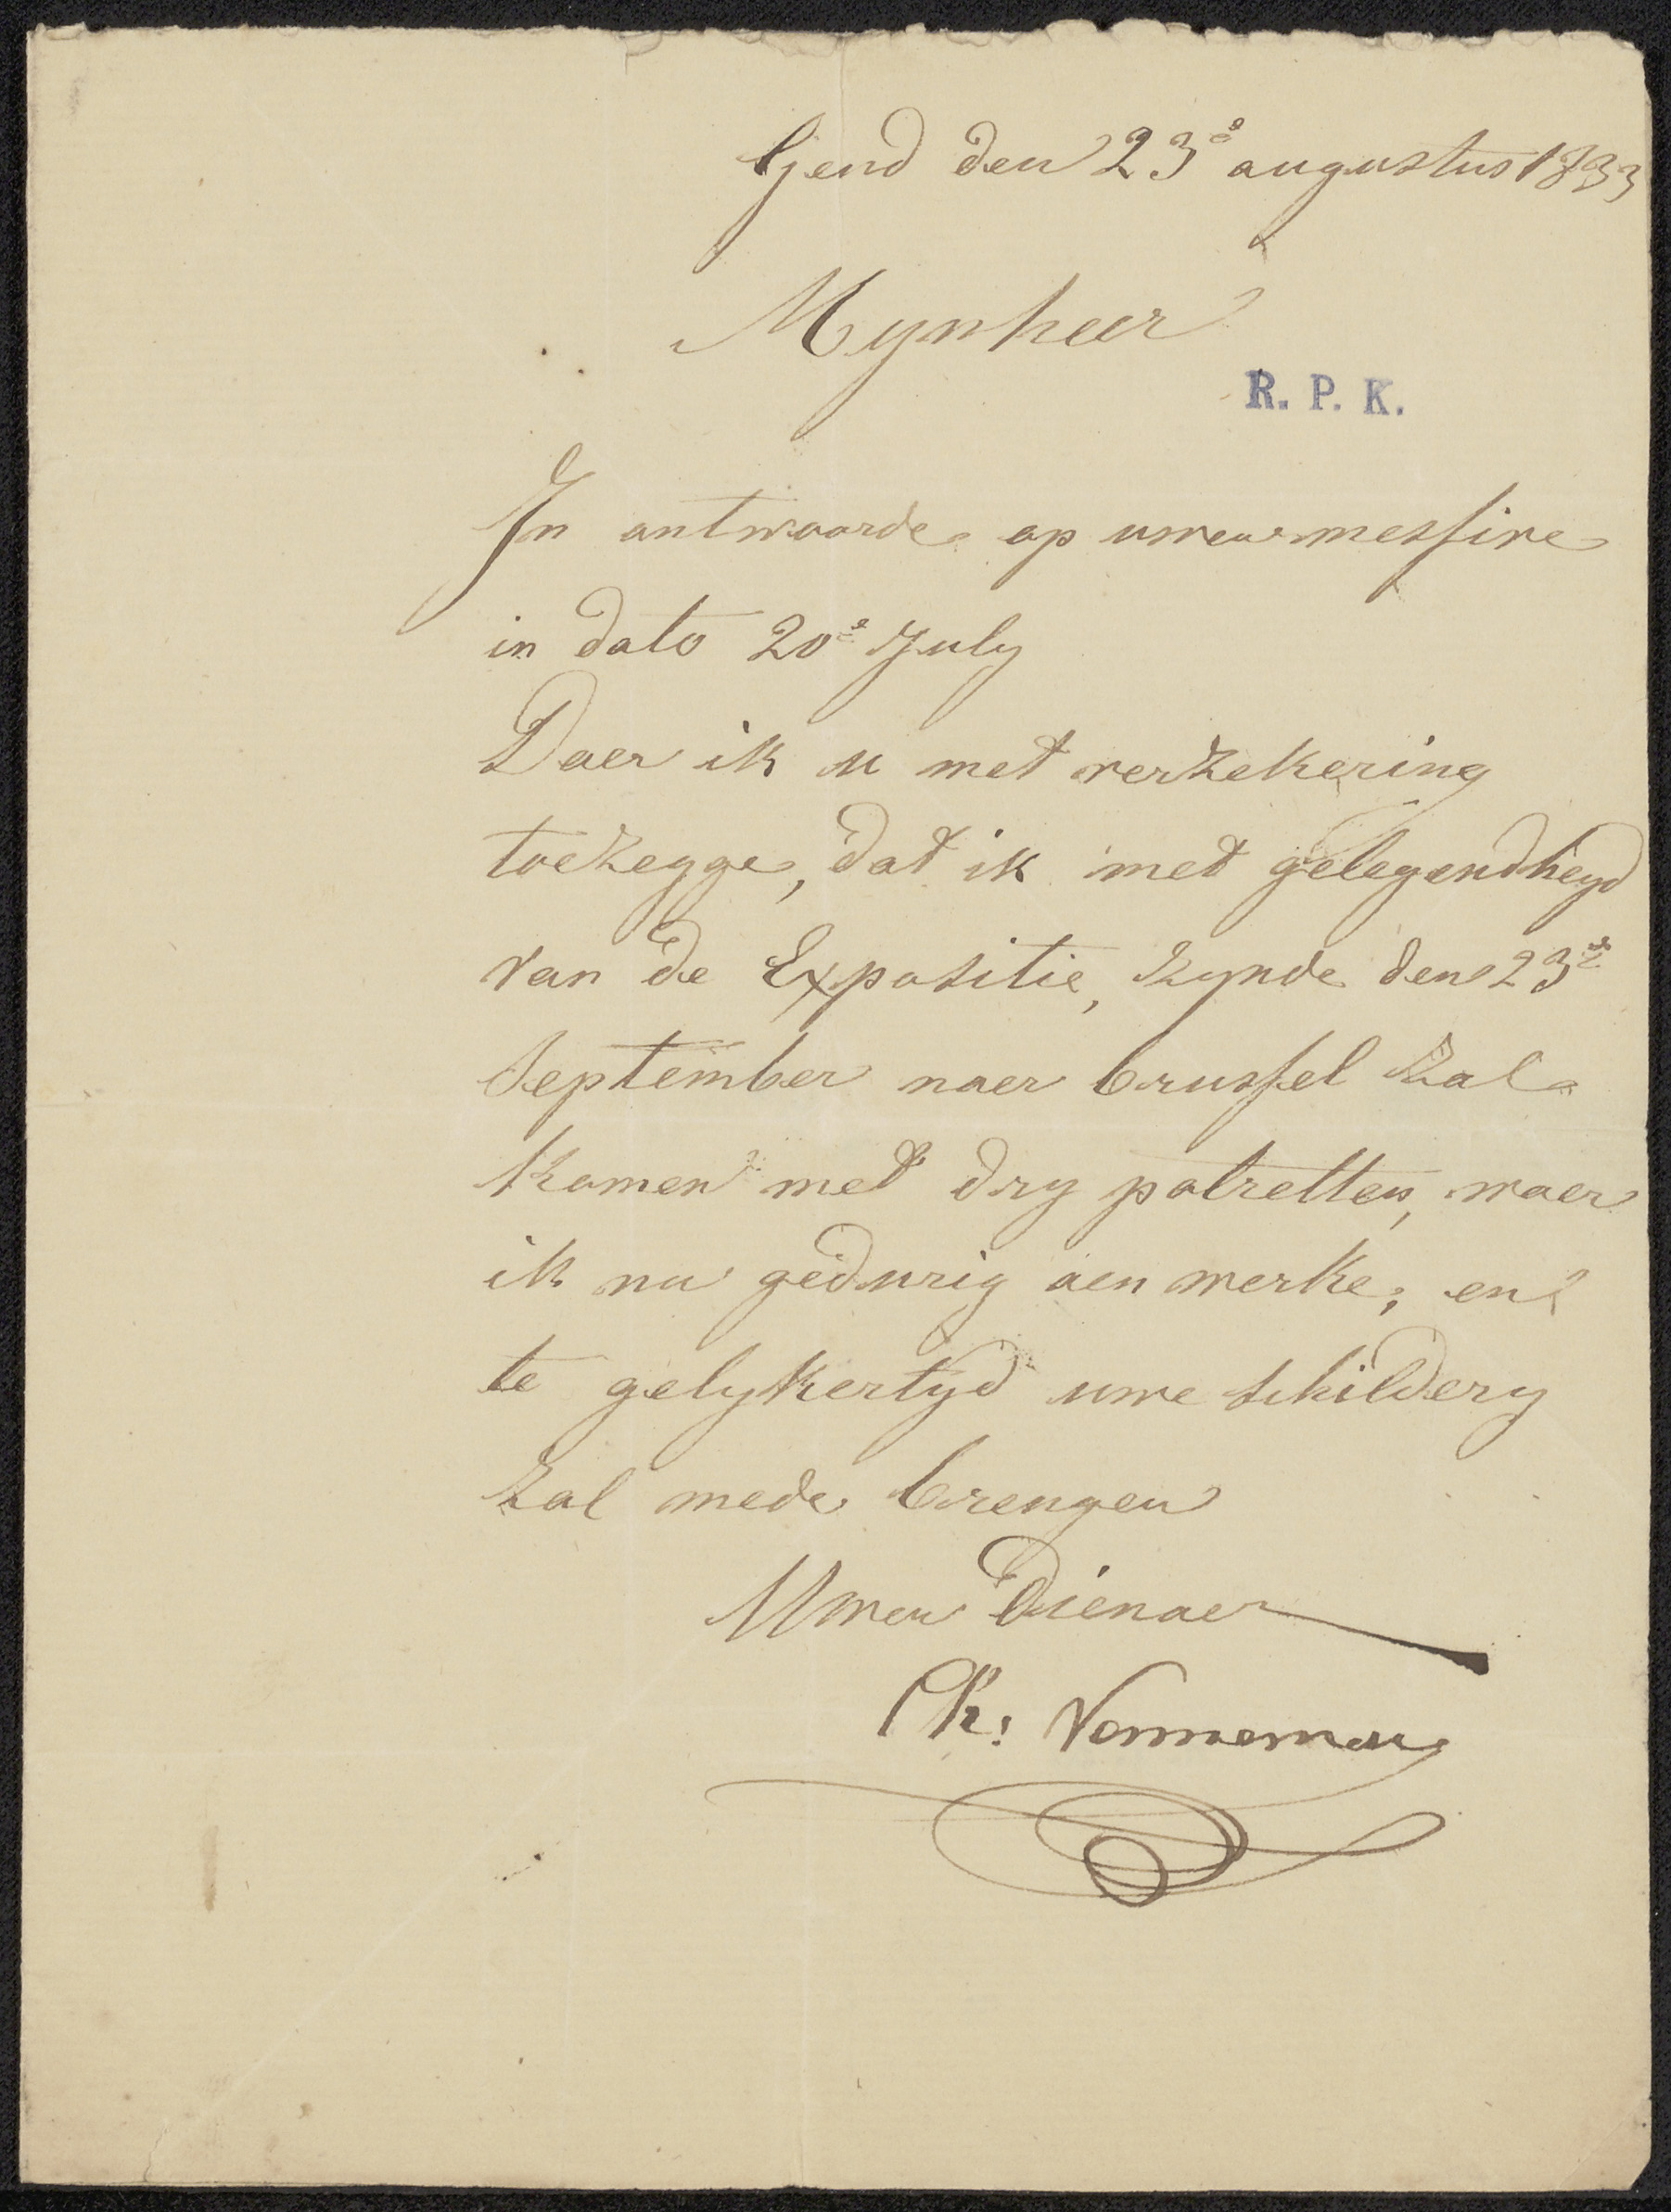 Gend den 23e augustus 1833
Mynheer
R. P. K.
In antwoorde op uwen messive
in dato 20e July
Daer ik u met verzekering
toezegge, dat ik met gelegendheyd
van de Expositie, zynde den 23e
September naer brussel zal
komen met dry potretten, waer
ik nu gedurig aen werke; en
te gelykertyd uwe schildery
zal mede brengen
Uwen Dienaer
Ch: Venneman